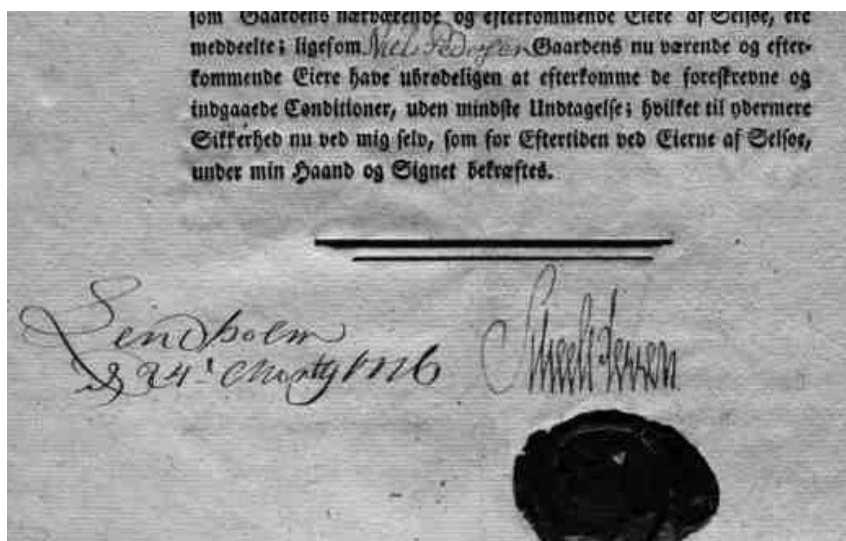 som Gaardens nærværende og efterkommende Eiere af Selsøe, ere
meddeelte; ligesom Niels Pedersen Gaardens nu værende og efter-
kommende Eiere have ubrødeligen at efterkomme de foreskrevne og
indgaaede Conditioner, uden mindste Undtagelse; hvilket til ydermere
Sikkerhed nu ved mig selv, som for Eftertiden ved Eierne af Selsøe,
under min Haand og Signet bekræftes.
Lindholm
d 24 Marty